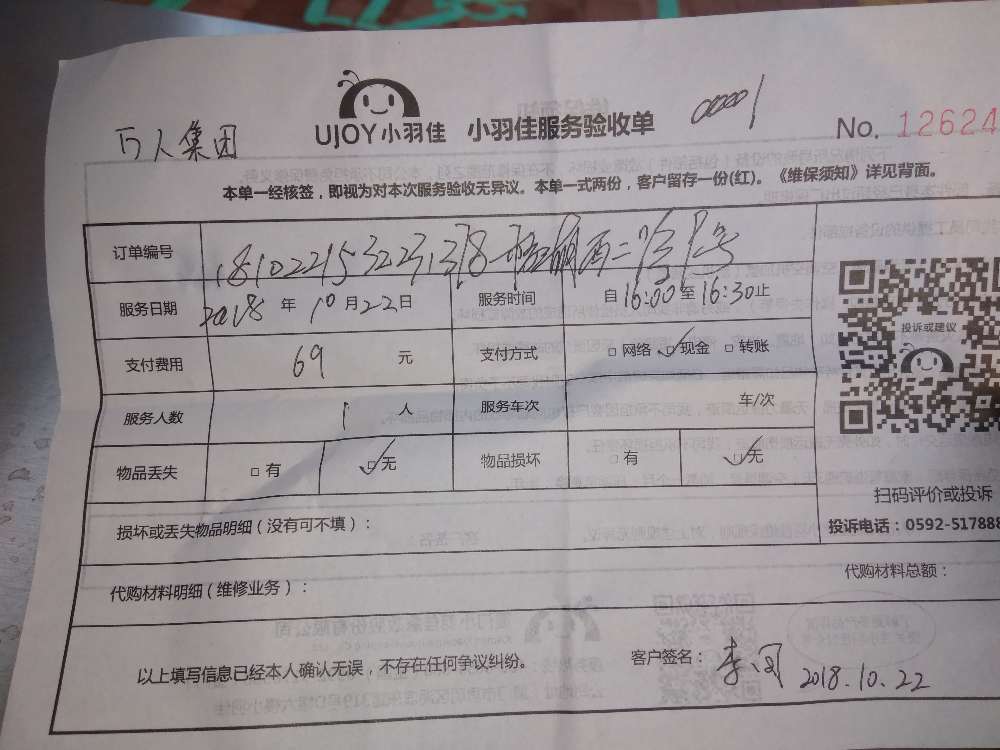 万人集团
UJOY小羽佳 小羽佳服务验收单 00001
No. 12624
本单一经核签，即视为对本次服务验收无异议。本单一式两份，客户留存一份(红)。《维保须知》详见背面。
订单编号
服务日期 2018 年 10 月 22 日 服务时间 自 16:00 至 16:30 止
支付费用 69 元 支付方式 □网络 ☑现金 □转账
投诉或建议
服务人数 1 人 服务车次 车/次
物品丢失 □有 ☑无 物品损坏 □有 ☑无
扫码评价或投诉
损坏或丢失物品明细（没有可不填）：
投诉电话：0592-517888
代购材料明细（维修业务）：
代购材料总额：
以上填写信息已经本人确认无误，不存在任何争议纠纷。 客户签名： 2018.10.22